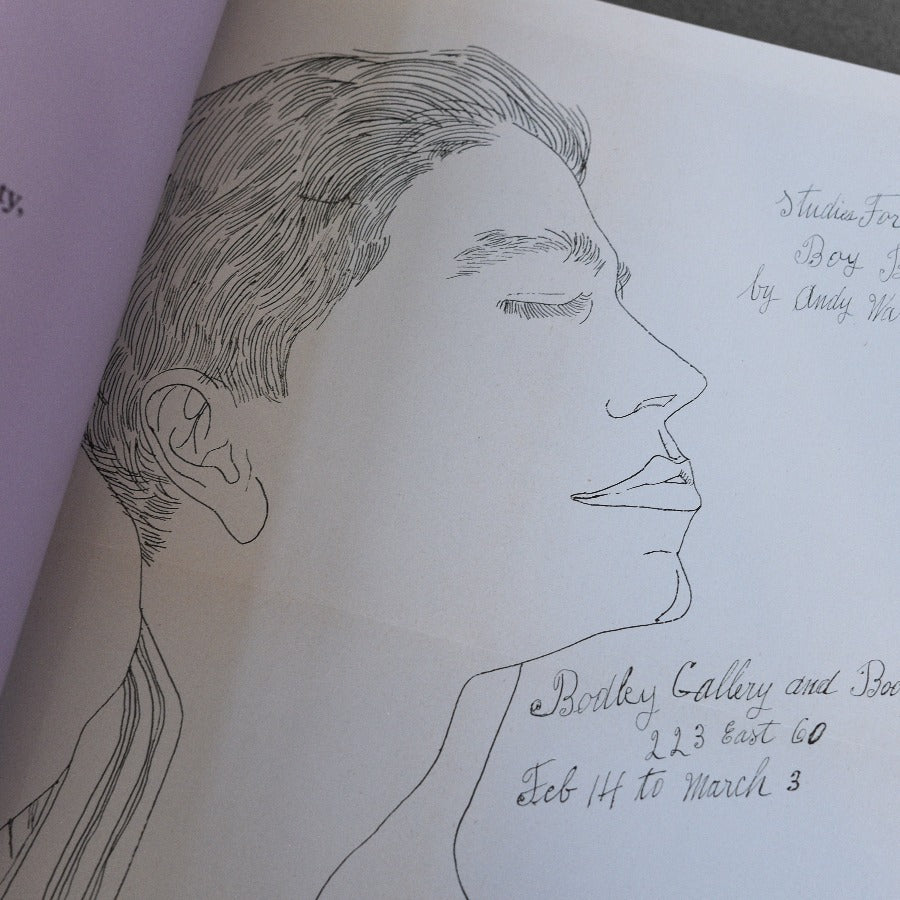 ty,
Studies For
Boy B
by Andy Wa
Bodley Gallery and Boo
223 East 60
Feb 14 to March 3